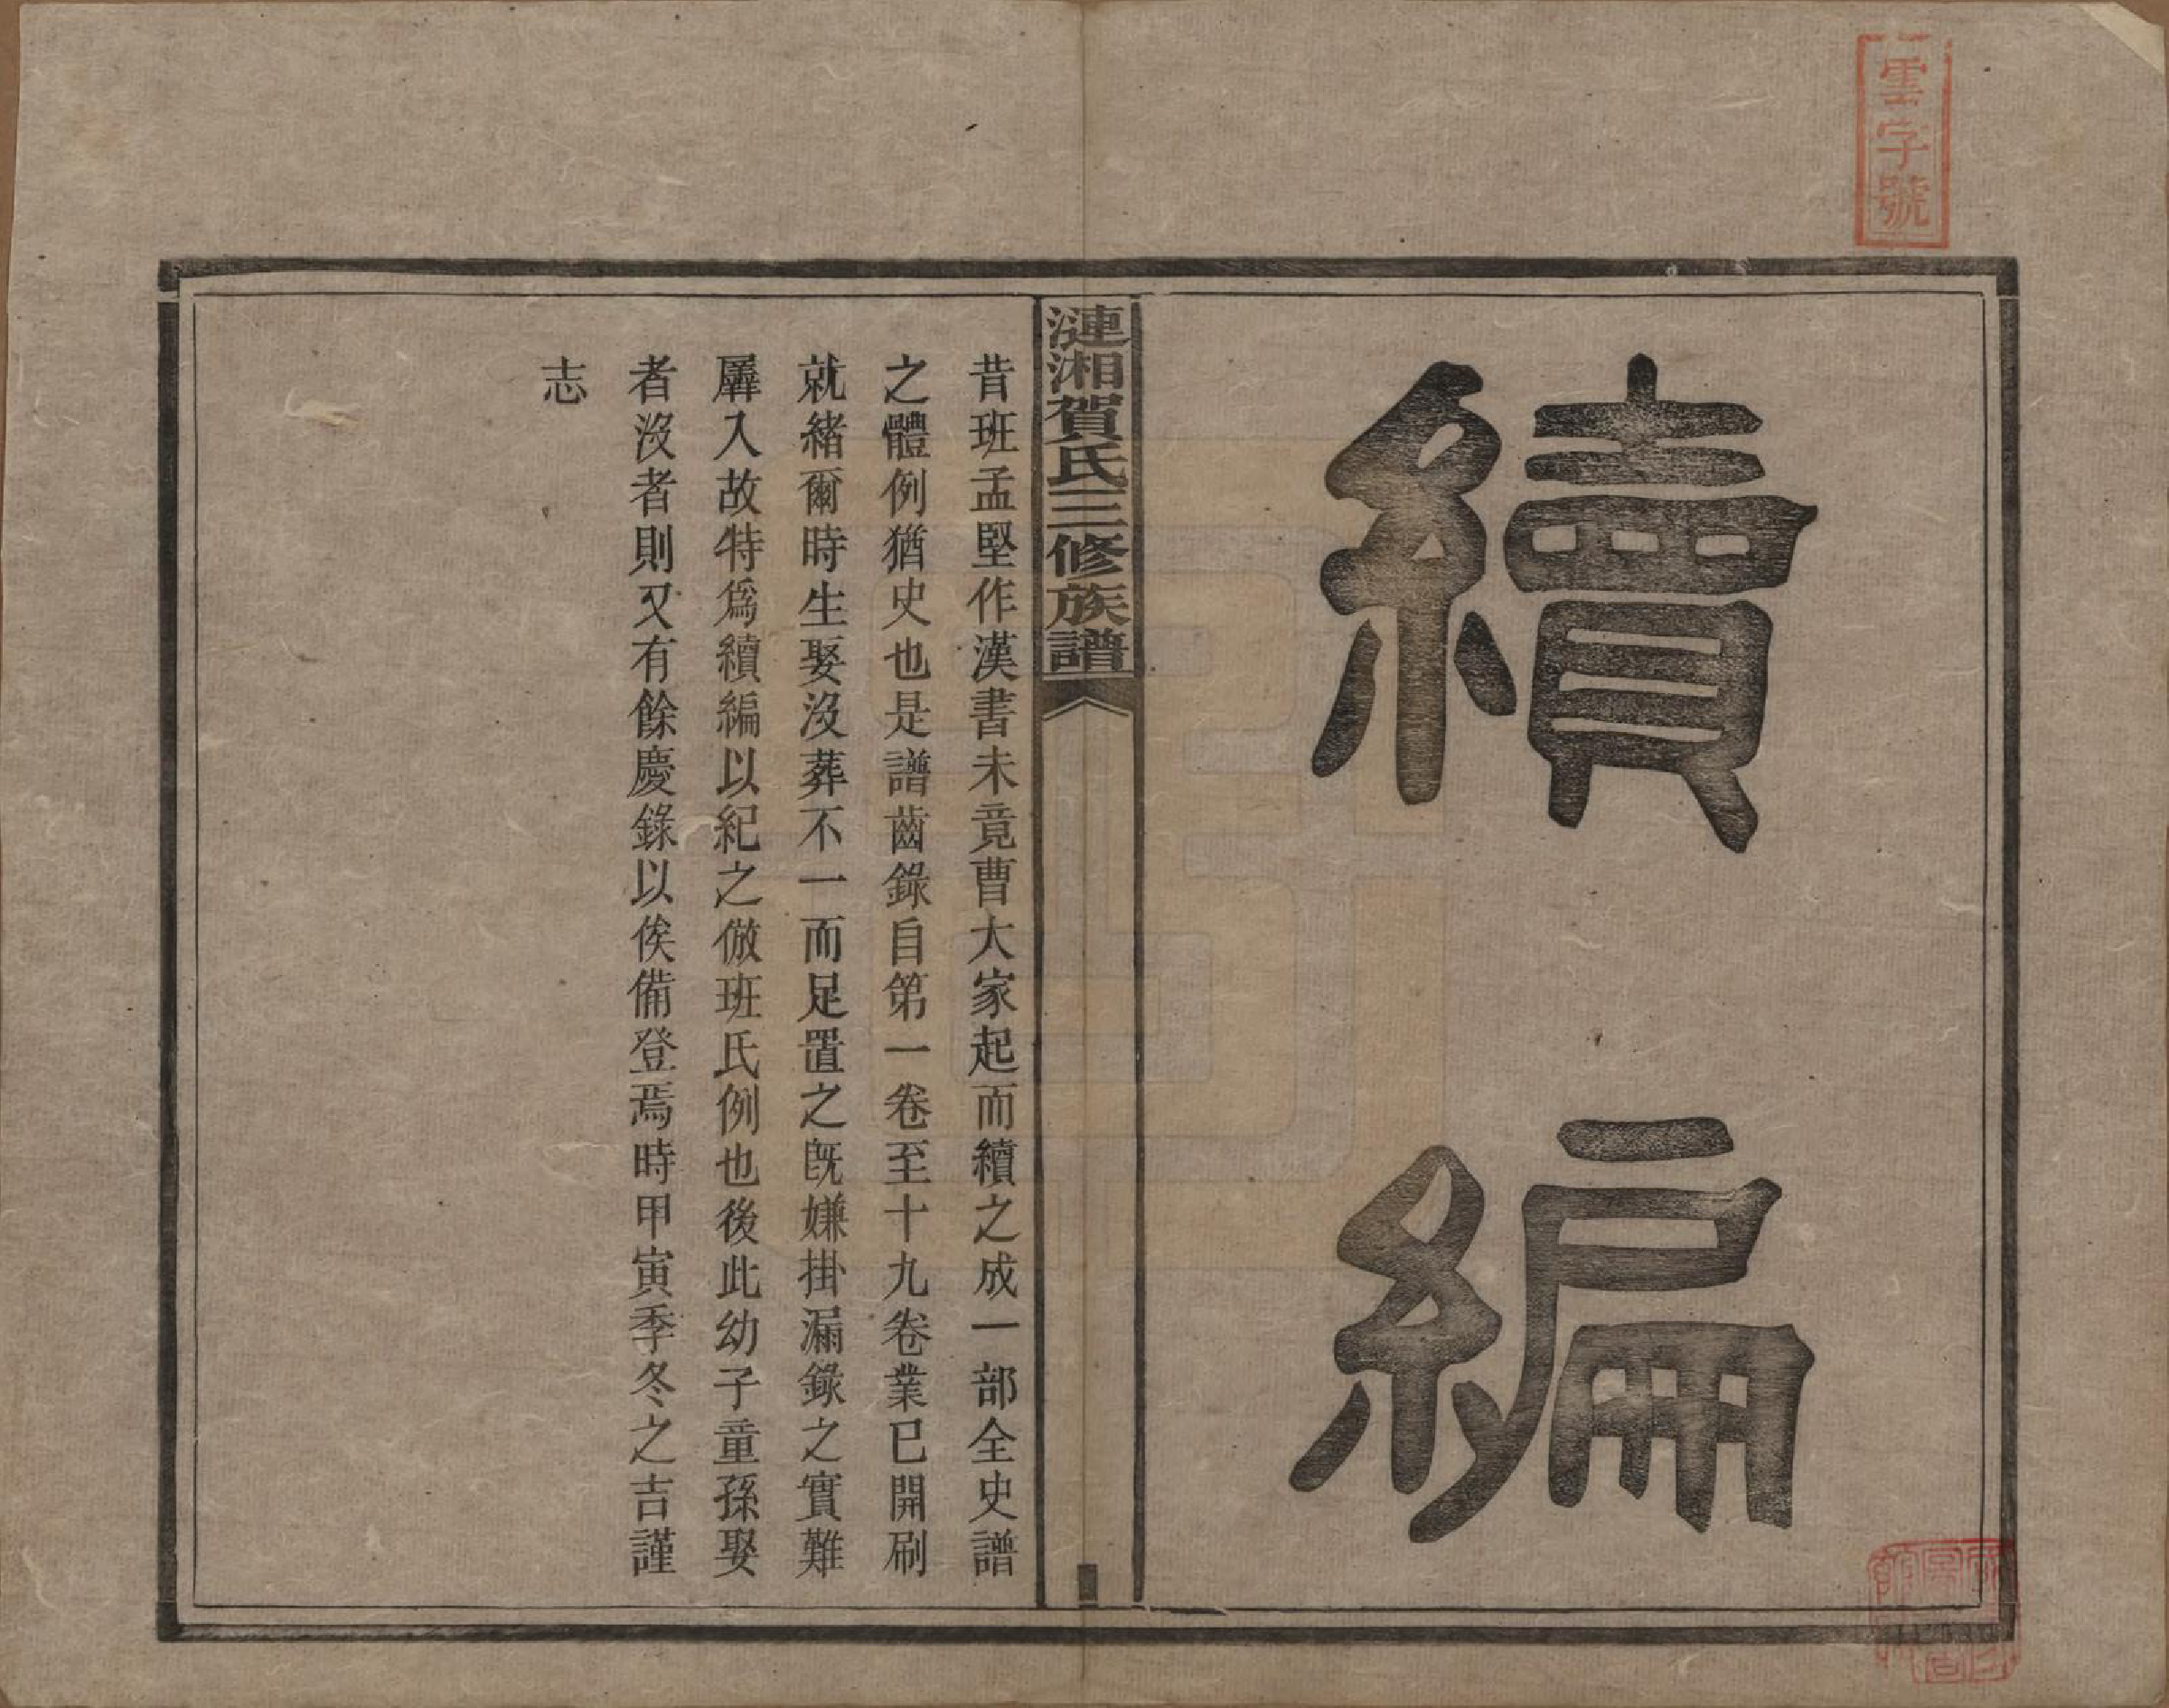 雲字號
續編
漣湘賀氏三修族譜
昔班孟堅作漢書未竟曹大家起而續之成一部全史譜
之體例猶史也是譜齒錄自第一卷至十九卷業已開刷
就緒爾時生娶沒葬不一而足置之既嫌掛漏錄之實難
羼入故特爲續編以紀之倣班氏例也後此幼子童孫娶
者沒者則又有餘慶錄以俟備登焉時甲寅季冬之吉謹
志